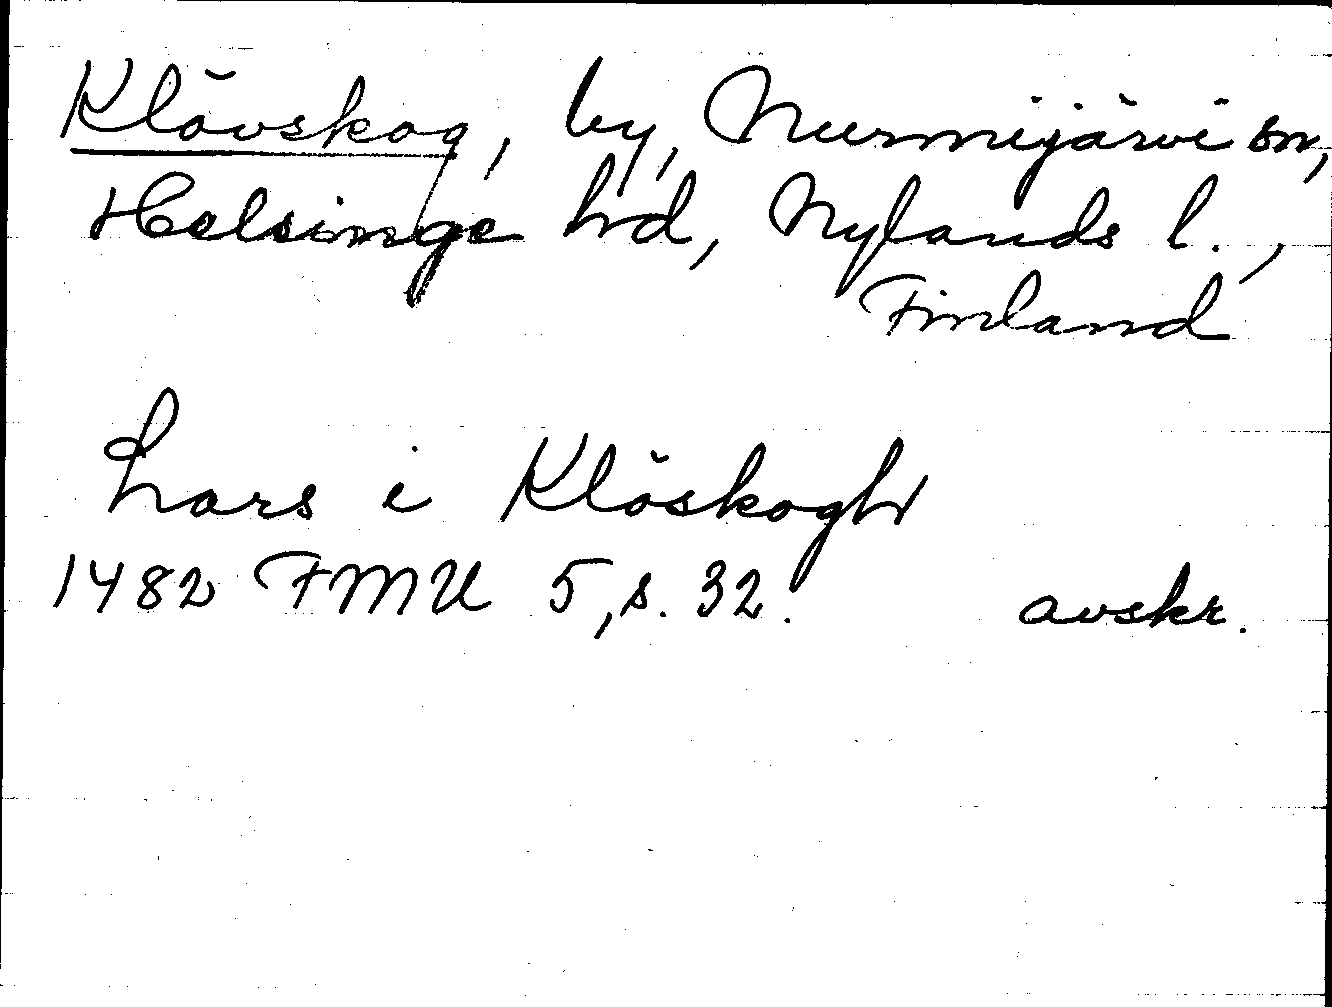 Klövskog, by, Nurmijärvi sn,
Helsinge hd, Nylands l.,
Finland
Lars i Klöskogh
1482 FMU 5, s. 32. avskr.